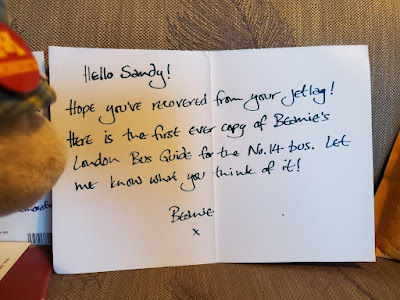 Hello Sandy!
Hope you've recovered from your jetlag!
Here is the first ever copy of Beanie's
London Bus Guide for the No.14 bus. Let
me know what you think of it!
Beanie
x